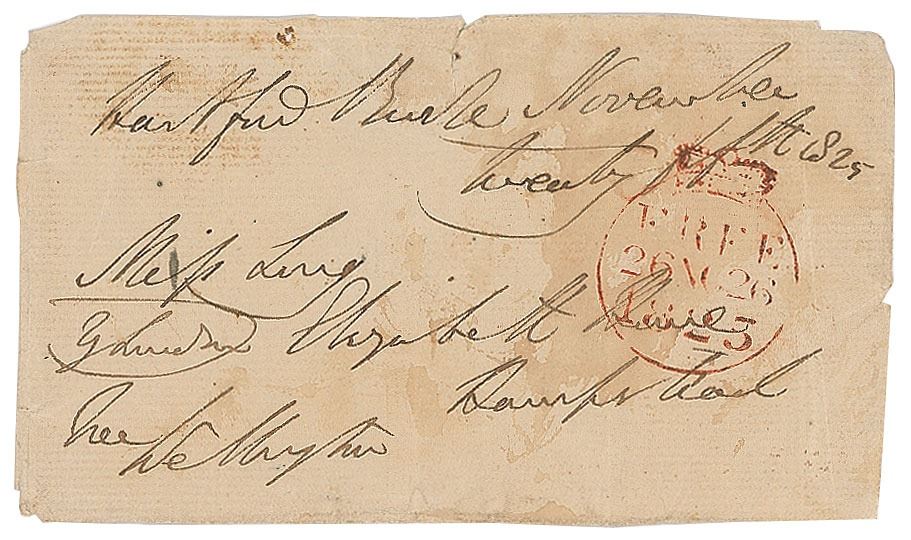 Hartford Bridge November
twenty fifth 1825
FREE
26 NO 26
1825
Miss Long
Elizabeth Place
Hampstead
Free
Wellington